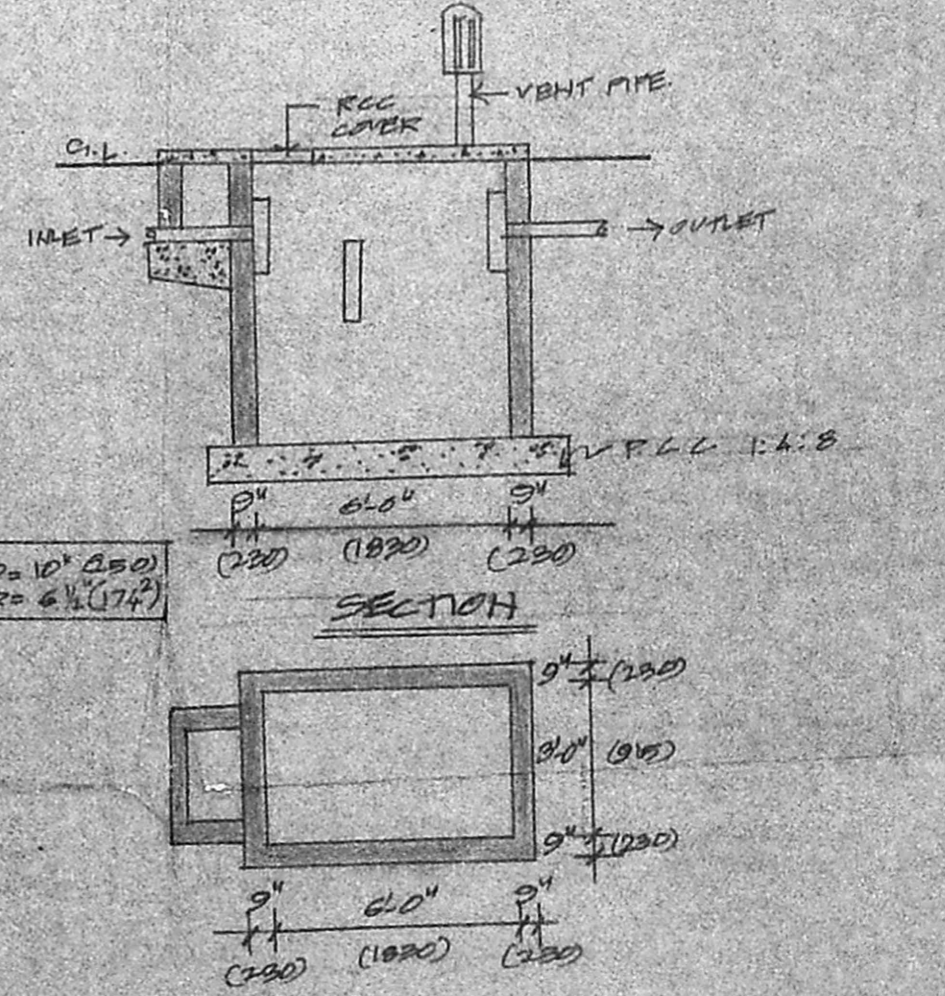 VENT PIPE.
RCC
COVER
G.L.
INLET →
→ OUTLET
P.C.C 1:4:8
9" 6'-0" 9"
(230) (1830) (230)
= 10" (250)
= 6½"(174²)
SECTION
9" (230)
3'-0" (915)
9" (230)
9" 6'-0" 9"
(230) (1830) (230)